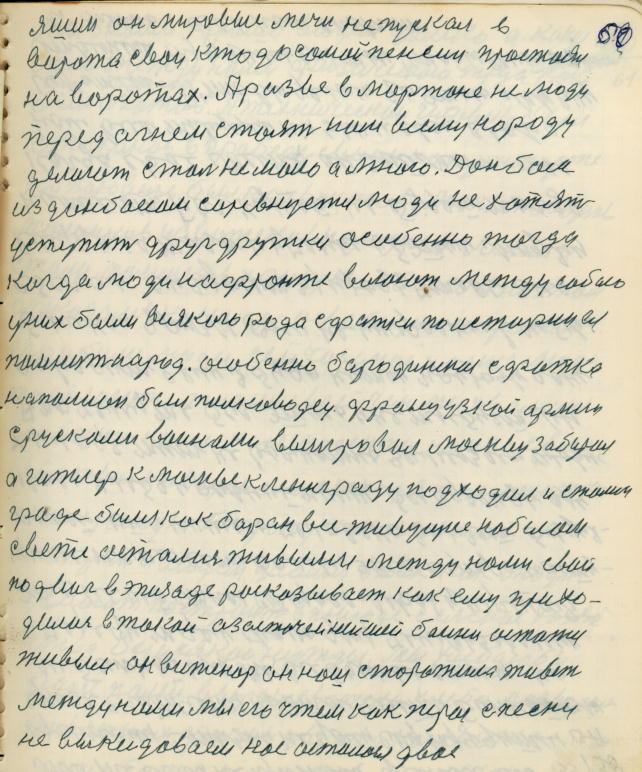 яшии он мировые мечи не пускал в
ворота свои кто до самой пенсии простоял
на воротах. А разве в мартене не люди
перед огнем стоят нам всему народу
делают стал не мало а много. Донбасс
из донбасом соревнуется люди не хотят
уступит друг дружки особенно тогда
когда люди на фронте воюют между собою
у них были всякого рода сфатки по истории их
помнит народ. особенно бародинская сфатка
наполион был полководец французкой армии
с русками воинами выигровал москву забирал
а гитлер к москве к ленинграду подходил и сталин
граде бился как баран все живущие на белом
свети остались живыми между нами свой
подвиг в эпизаде росказывает как ему прихо-
дилос в такой ажесточейшей баини остатся
живым он виженер он наш старожила живет
между нами мы его чтем как героя с песни
не выкидоваем нас осталос двое